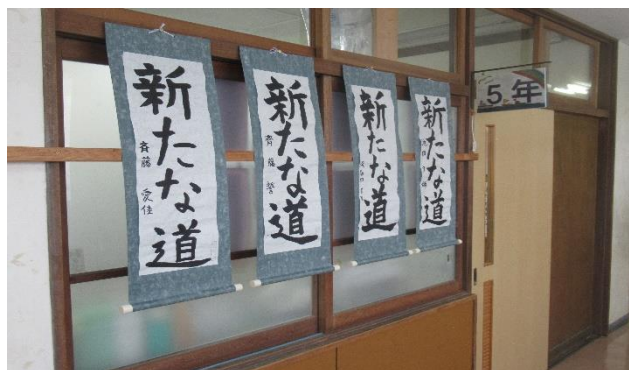 新たな道
斉藤 愛佳
新たな道
齊藤
新たな道
新たな道
5年